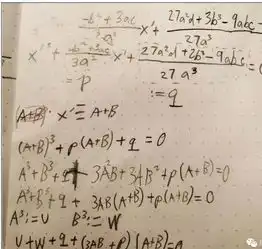 -b² + 3ac / 3a² x' + 27a²d + 3b³ - 9abc
x'³ + -b² + 3ac / 3a² x' + 27a²d + 2b³ - 9abc / 27a³ =
:= p := q
x' = A+B
(A+B)³ + p(A+B) + q = 0
A³ + B³ + q + 3A²B + 3AB² + p(A+B) = 0
A³ + B³ + q + 3AB(A+B) + p(A+B) = 0
A³ := U B³ := W
U + W + q + (3AB + p)(A+B) = 0